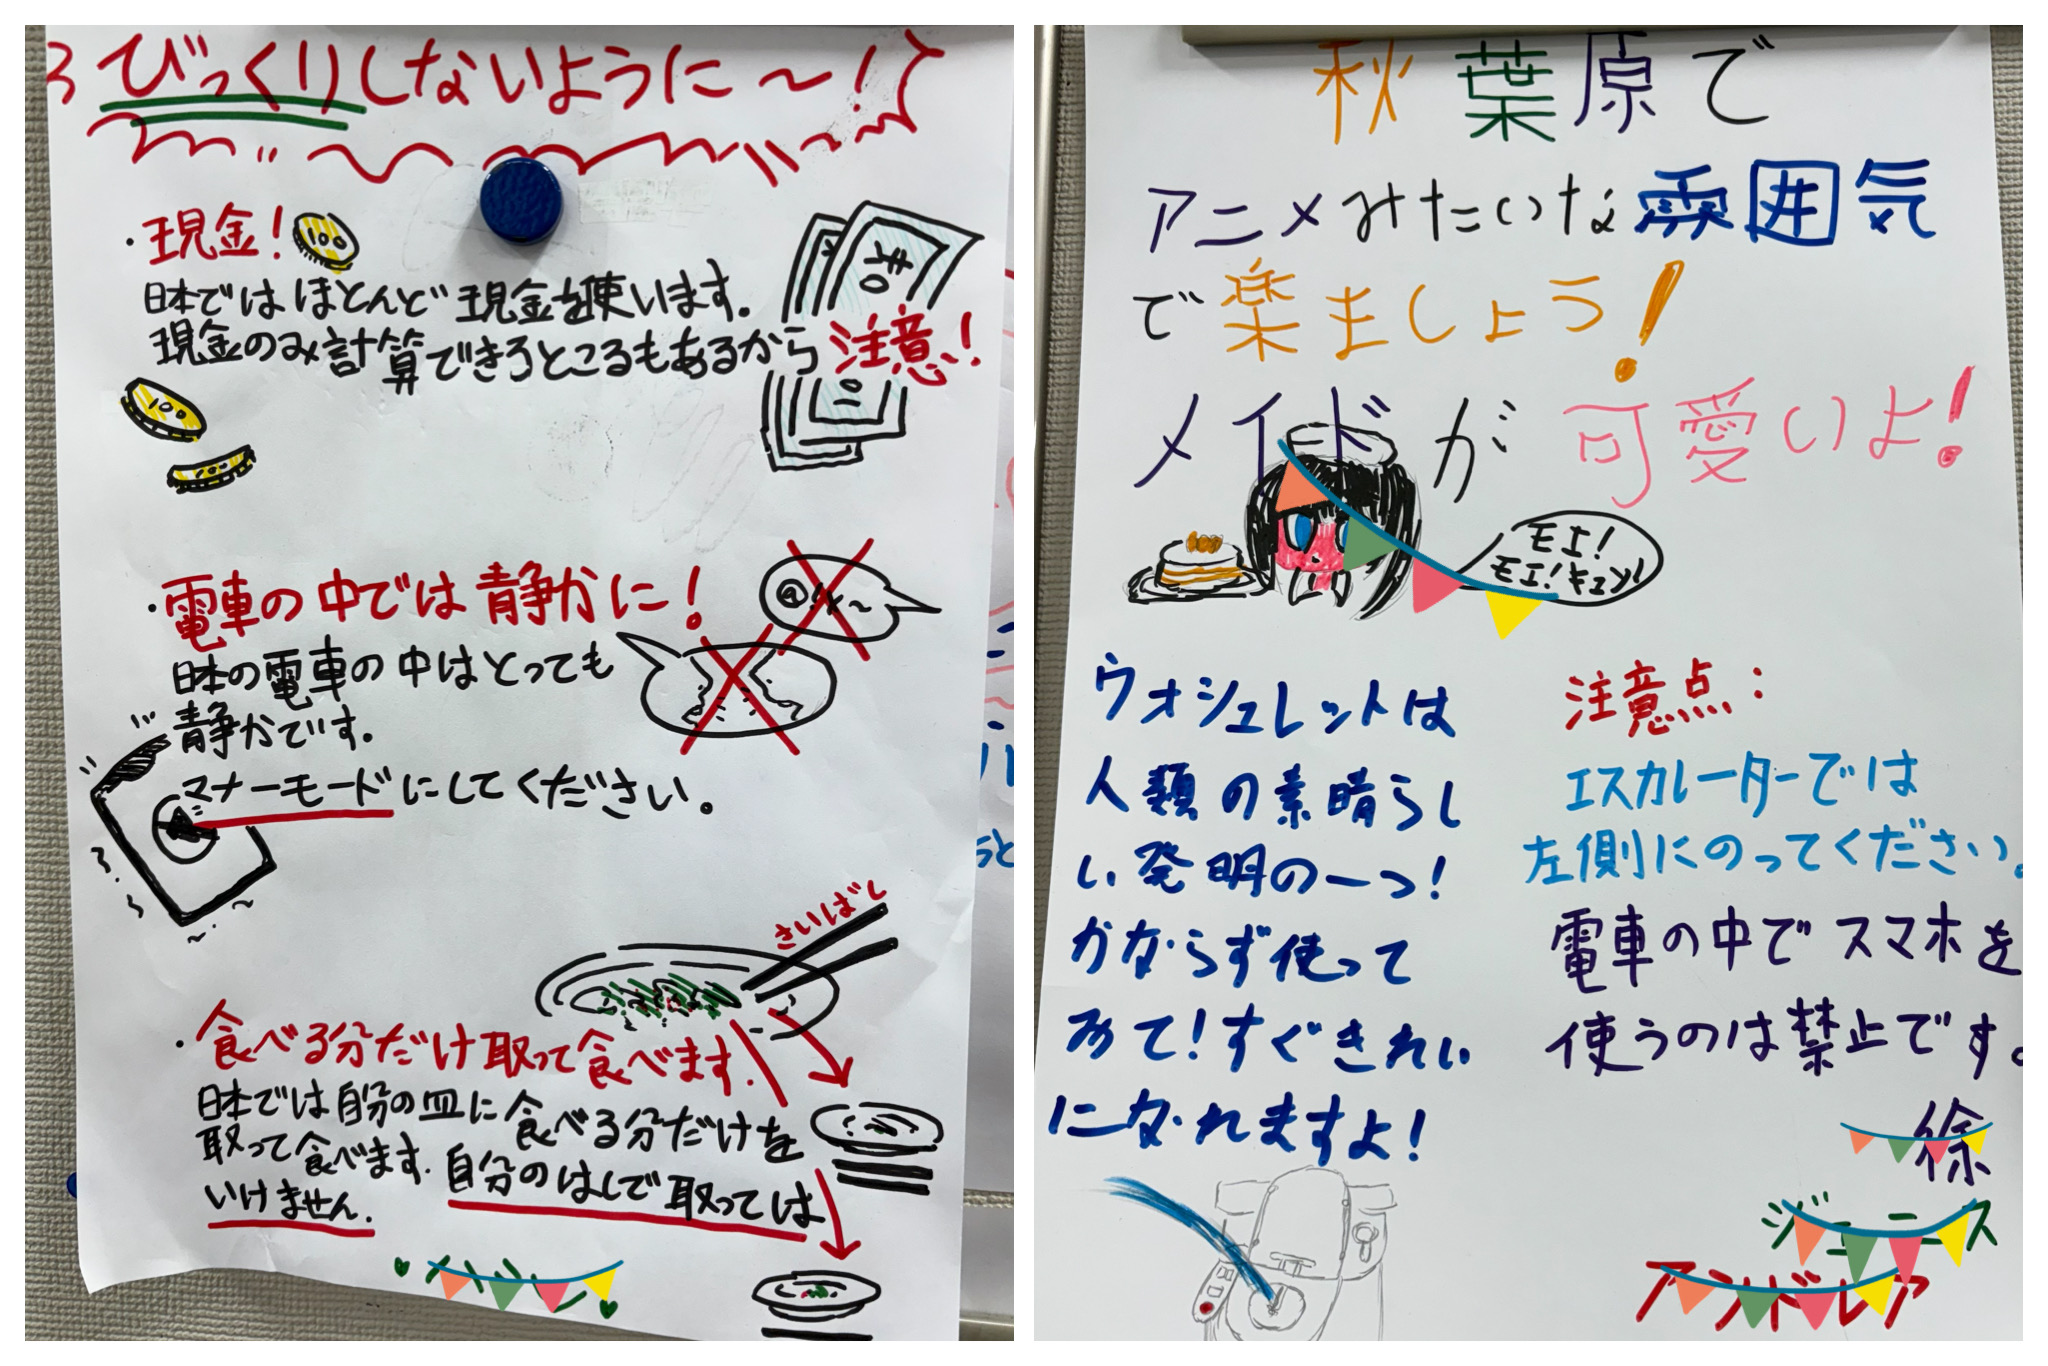 びっくりしないように〜!
・現金!
100
日本ではほとんど現金を使います。
現金のみ計算できるところもあるから注意!
100
100
・電車の中では静かに!
日本の電車の中はとっても
静かです。
マナーモードにしてください。
さいばし
・食べる分だけ取って食べます。
日本では自分の皿に食べる分だけを
取って食べます。自分のはしで取っては
いけません。
秋葉原で
アニメみたいな雰囲気
で楽ましょう!
メイドが可愛いよ!
モエ!
モエ!キュン!
ウォシュレットは
人類の素晴らし
い発明の一つ!
かならず使って
みて!すぐきれい
になれますよ!
注意点:
エスカレーターでは
左側にのってください。
電車の中でスマホを
使うのは禁止です。
徐
アンドレア